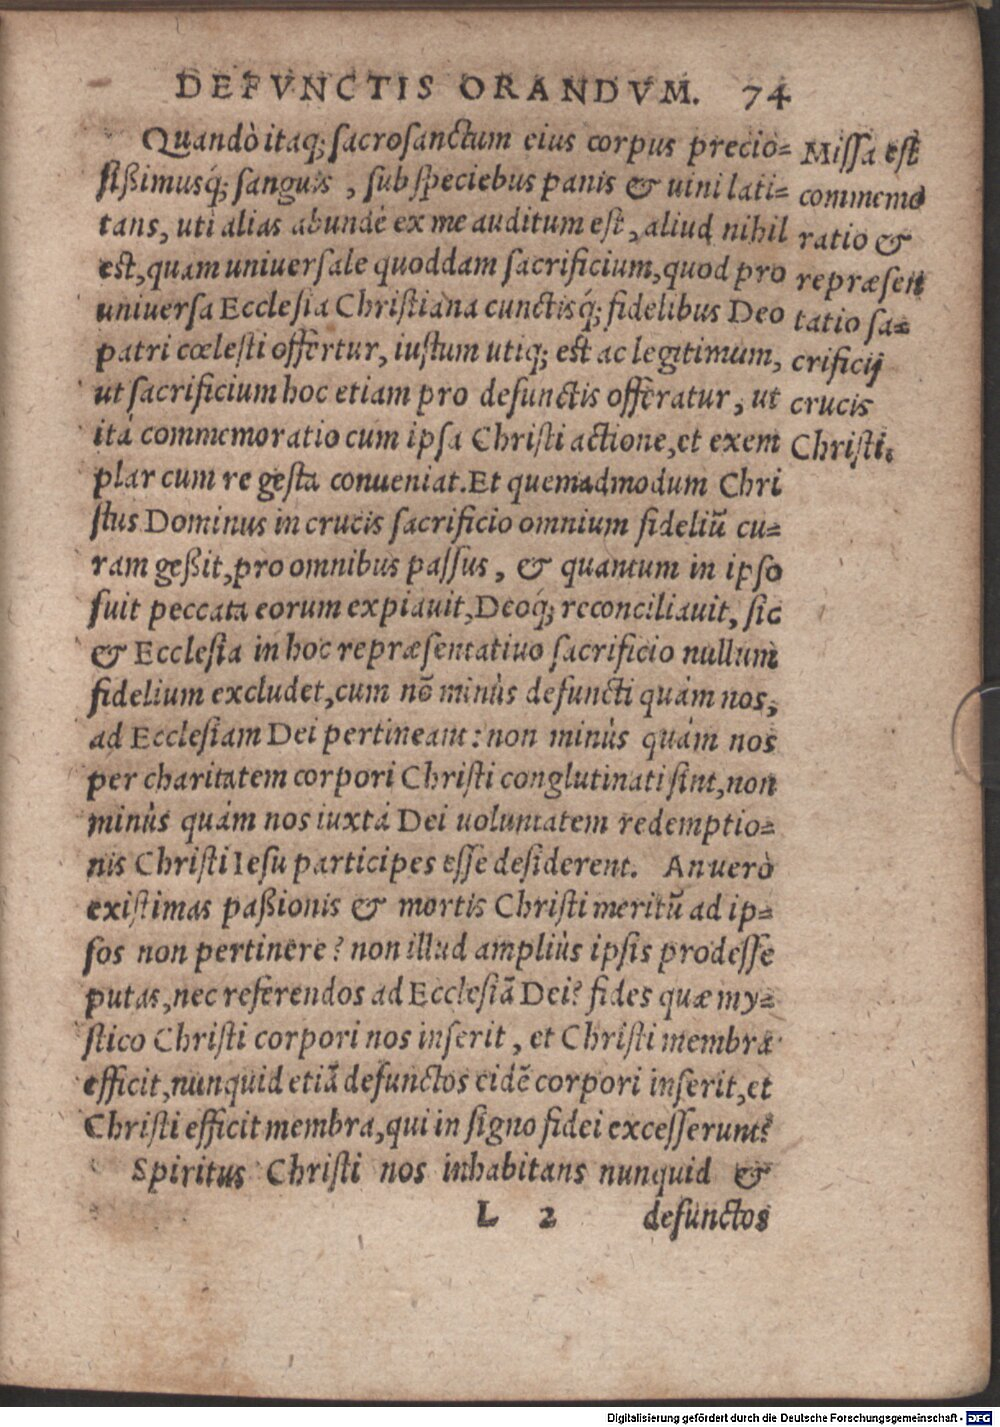 DEFVNCTIS ORANDVM. 74
Quandò itaq; sacrosanctum eius corpus precio-
sißimusq́; sanguis , sub speciebus panis & uini lati-
tans, uti alias abundè ex me auditum est, aliud nihil
est, quam uniuersale quoddam sacrificium, quod pro
uniuersa Ecclesia Christiana cunctisq́; fidelibus Deo
patri cœlesti offertur, iustum utiq; est ac legitimum,
ut sacrificium hoc etiam pro defunctis offeratur, ut
ita commemoratio cum ipsa Christi actione, et exem
plar cum re gesta conueniat. Et quemadmodum Chri
stus Dominus in crucis sacrificio omnium fideliũ cu-
ram geßit, pro omnibus passus, & quantum in ipso
fuit peccata eorum expiauit, Deoq́; reconciliauit, sic
& Ecclesia in hoc repræsentatiuo sacrificio nullum
fidelium excludet, cum nõ minùs defuncti quàm nos,
ad Ecclesiam Dei pertineant: non minùs quàm nos
per charitatem corpori Christi conglutinati sint, non
minùs quàm nos iuxtà Dei uoluntatem redemptio-
nis Christi Iesu participes esse desiderent. An uerò
existimas paßionis & mortis Christi meritũ ad ip-
sos non pertinere? non illud ampliùs ipsis prodesse
putas, nec referendos ad Ecclesiã Dei? fides quæ my-
stico Christi corpori nos inserit, et Christi membra
efficit, nunquid etiã defunctos eidẽ corpori inserit, et
Christi efficit membra, qui in signo fidei excesserunt?
Spiritus Christi nos inhabitans nunquid &
L 2 defunctos
Missa est
commemo
ratio &
repræsen
tatio sa-
crificij
crucis
Christi.
Digitalisierung gefördert durch die Deutsche Forschungsgemeinschaft - DFG